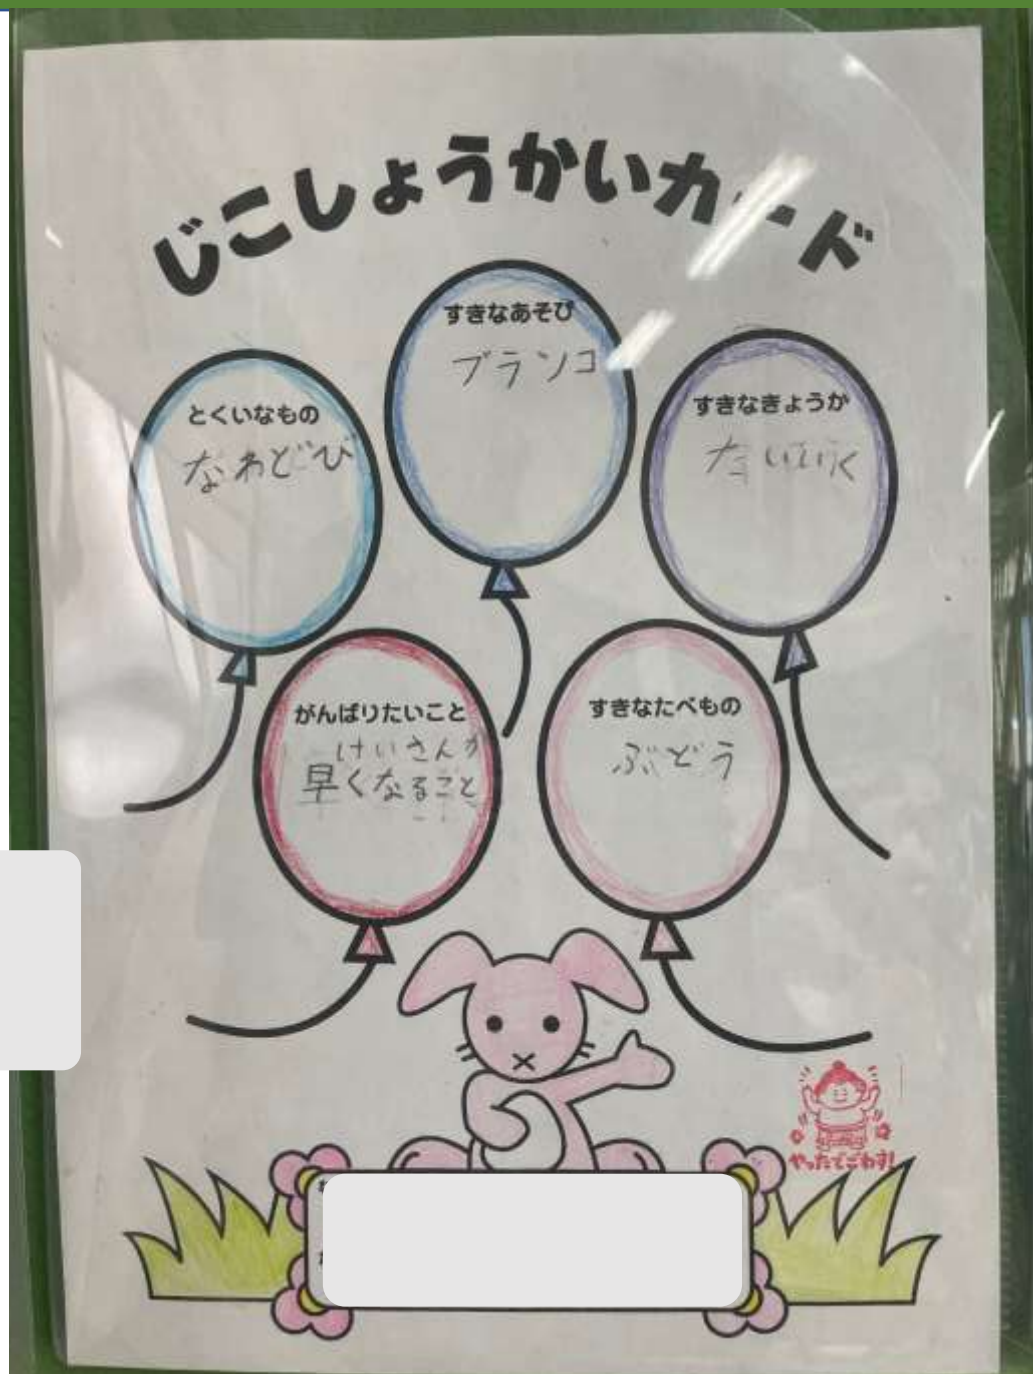 じこしょうかいカード
すきなあそび
ブランコ
とくいなもの
なわとび
すきなきょうか
たいいく
がんばりたいこと
けいさんが
早くなること
すきなたべもの
ぶどう
やったでごわす!